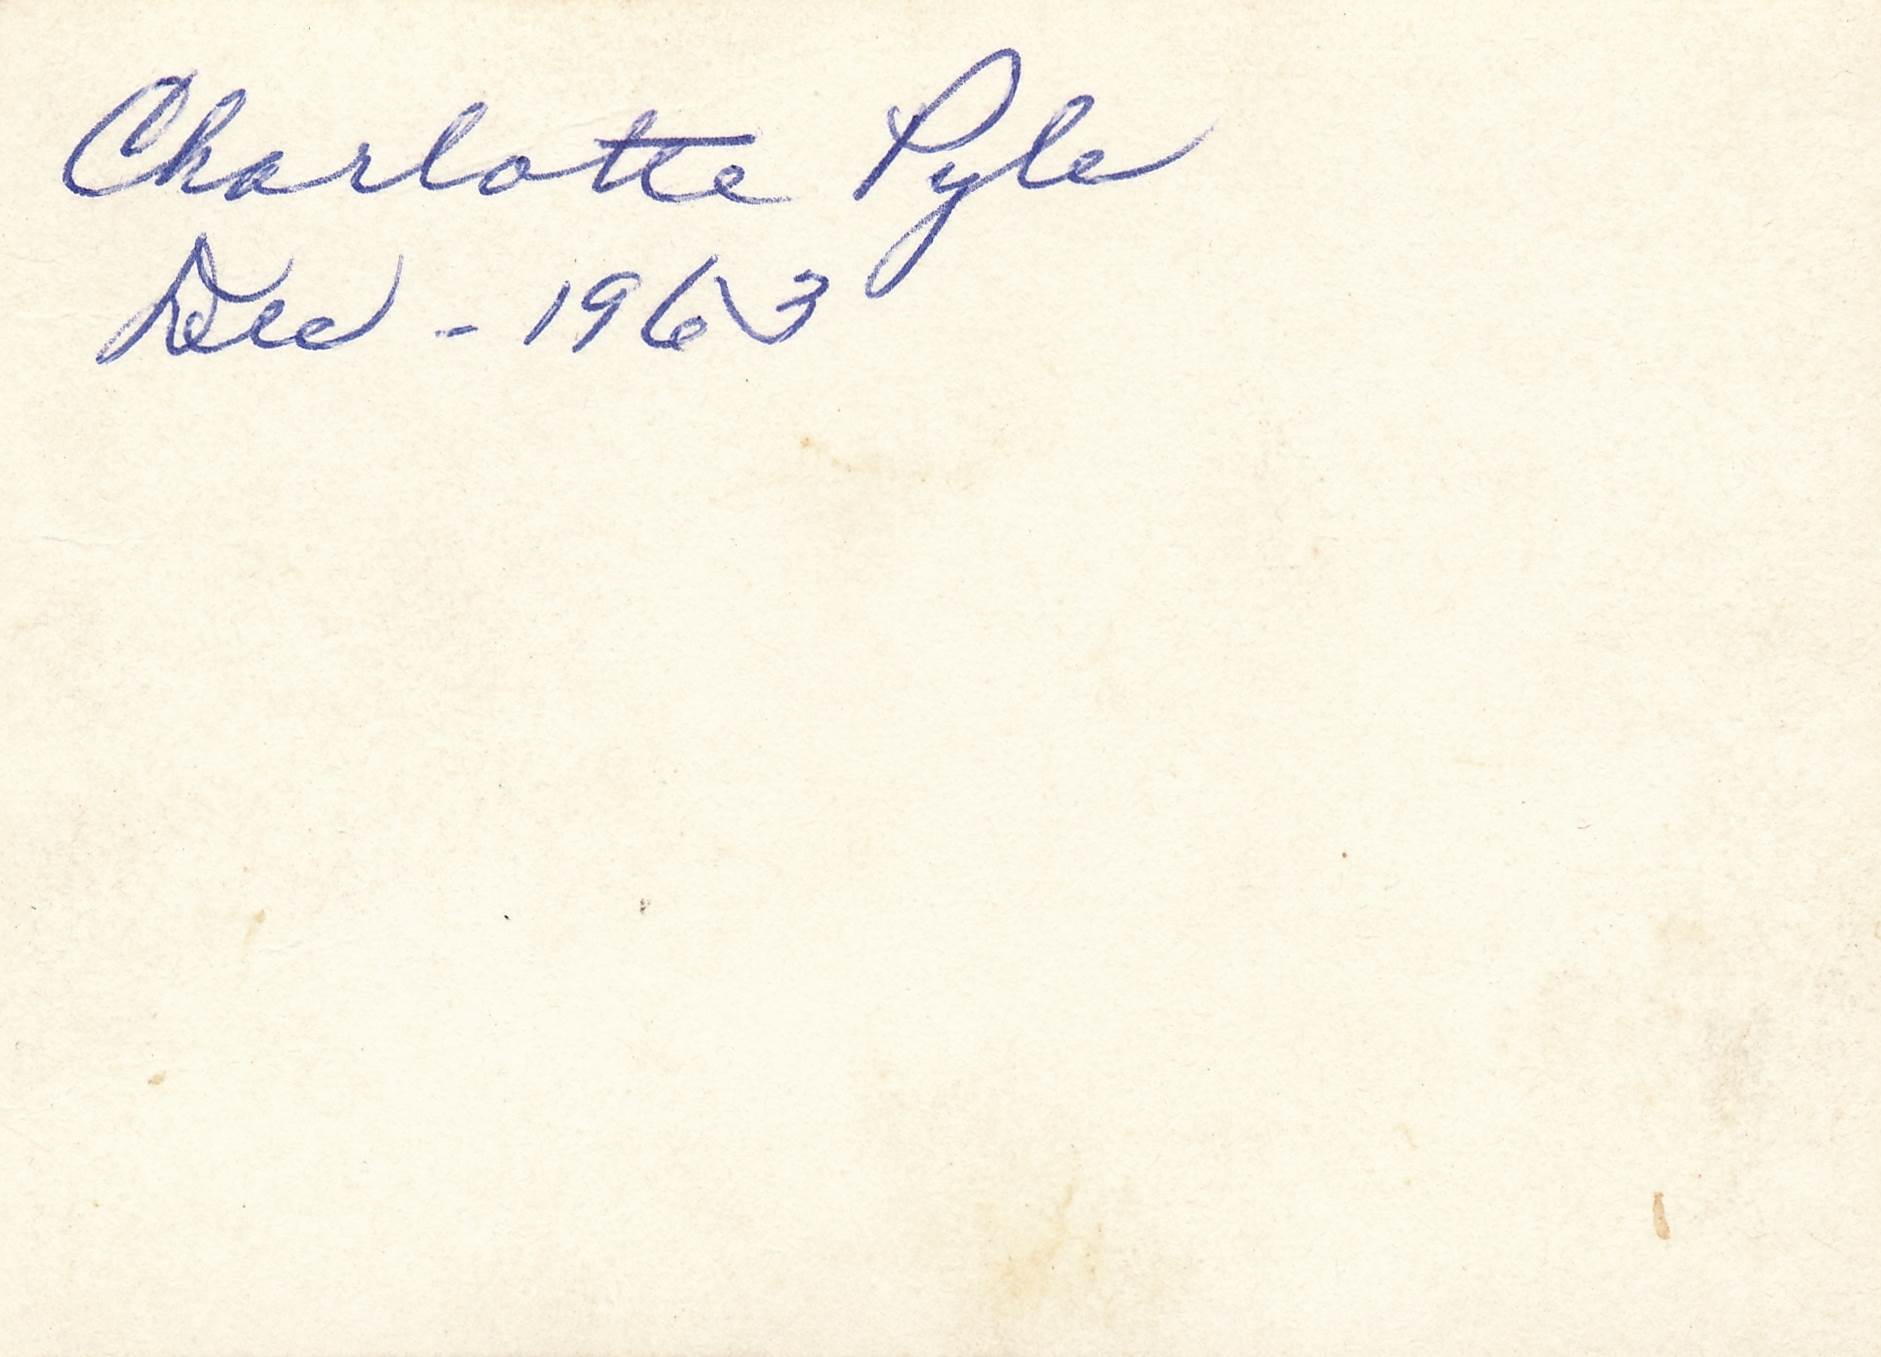 Charlotte Pyle
Dec - 1963